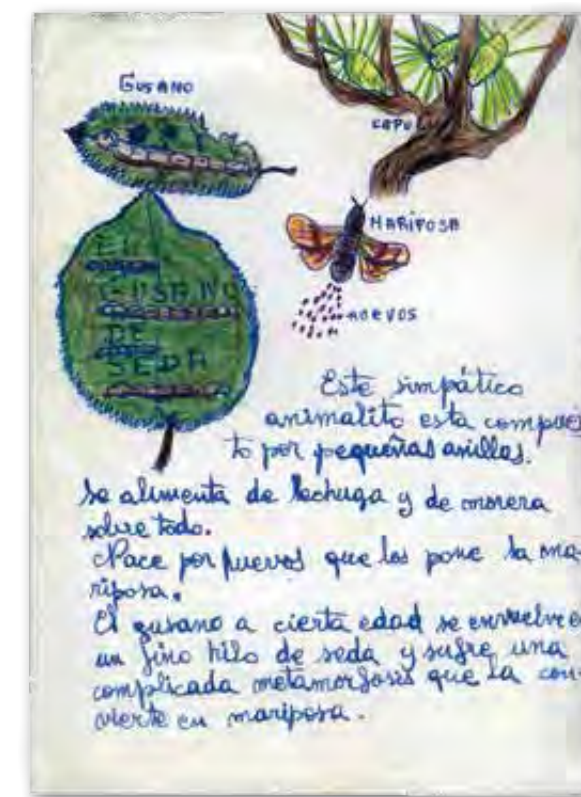 GUSANO
CAPU
MARIPOSA
EL
GUSANO
DE
SEDA
Este simpático
animalito esta compues
to por pequeñas anillas.
Se alimenta de lechuga y de morera
sobre todo.
Nace por huevos que los pone la ma-
riposa.
El gusano a cierta edad se envuelve e
un fino hilo de seda y sufre una
complicada metamorfosis que la con-
vierte en mariposa.